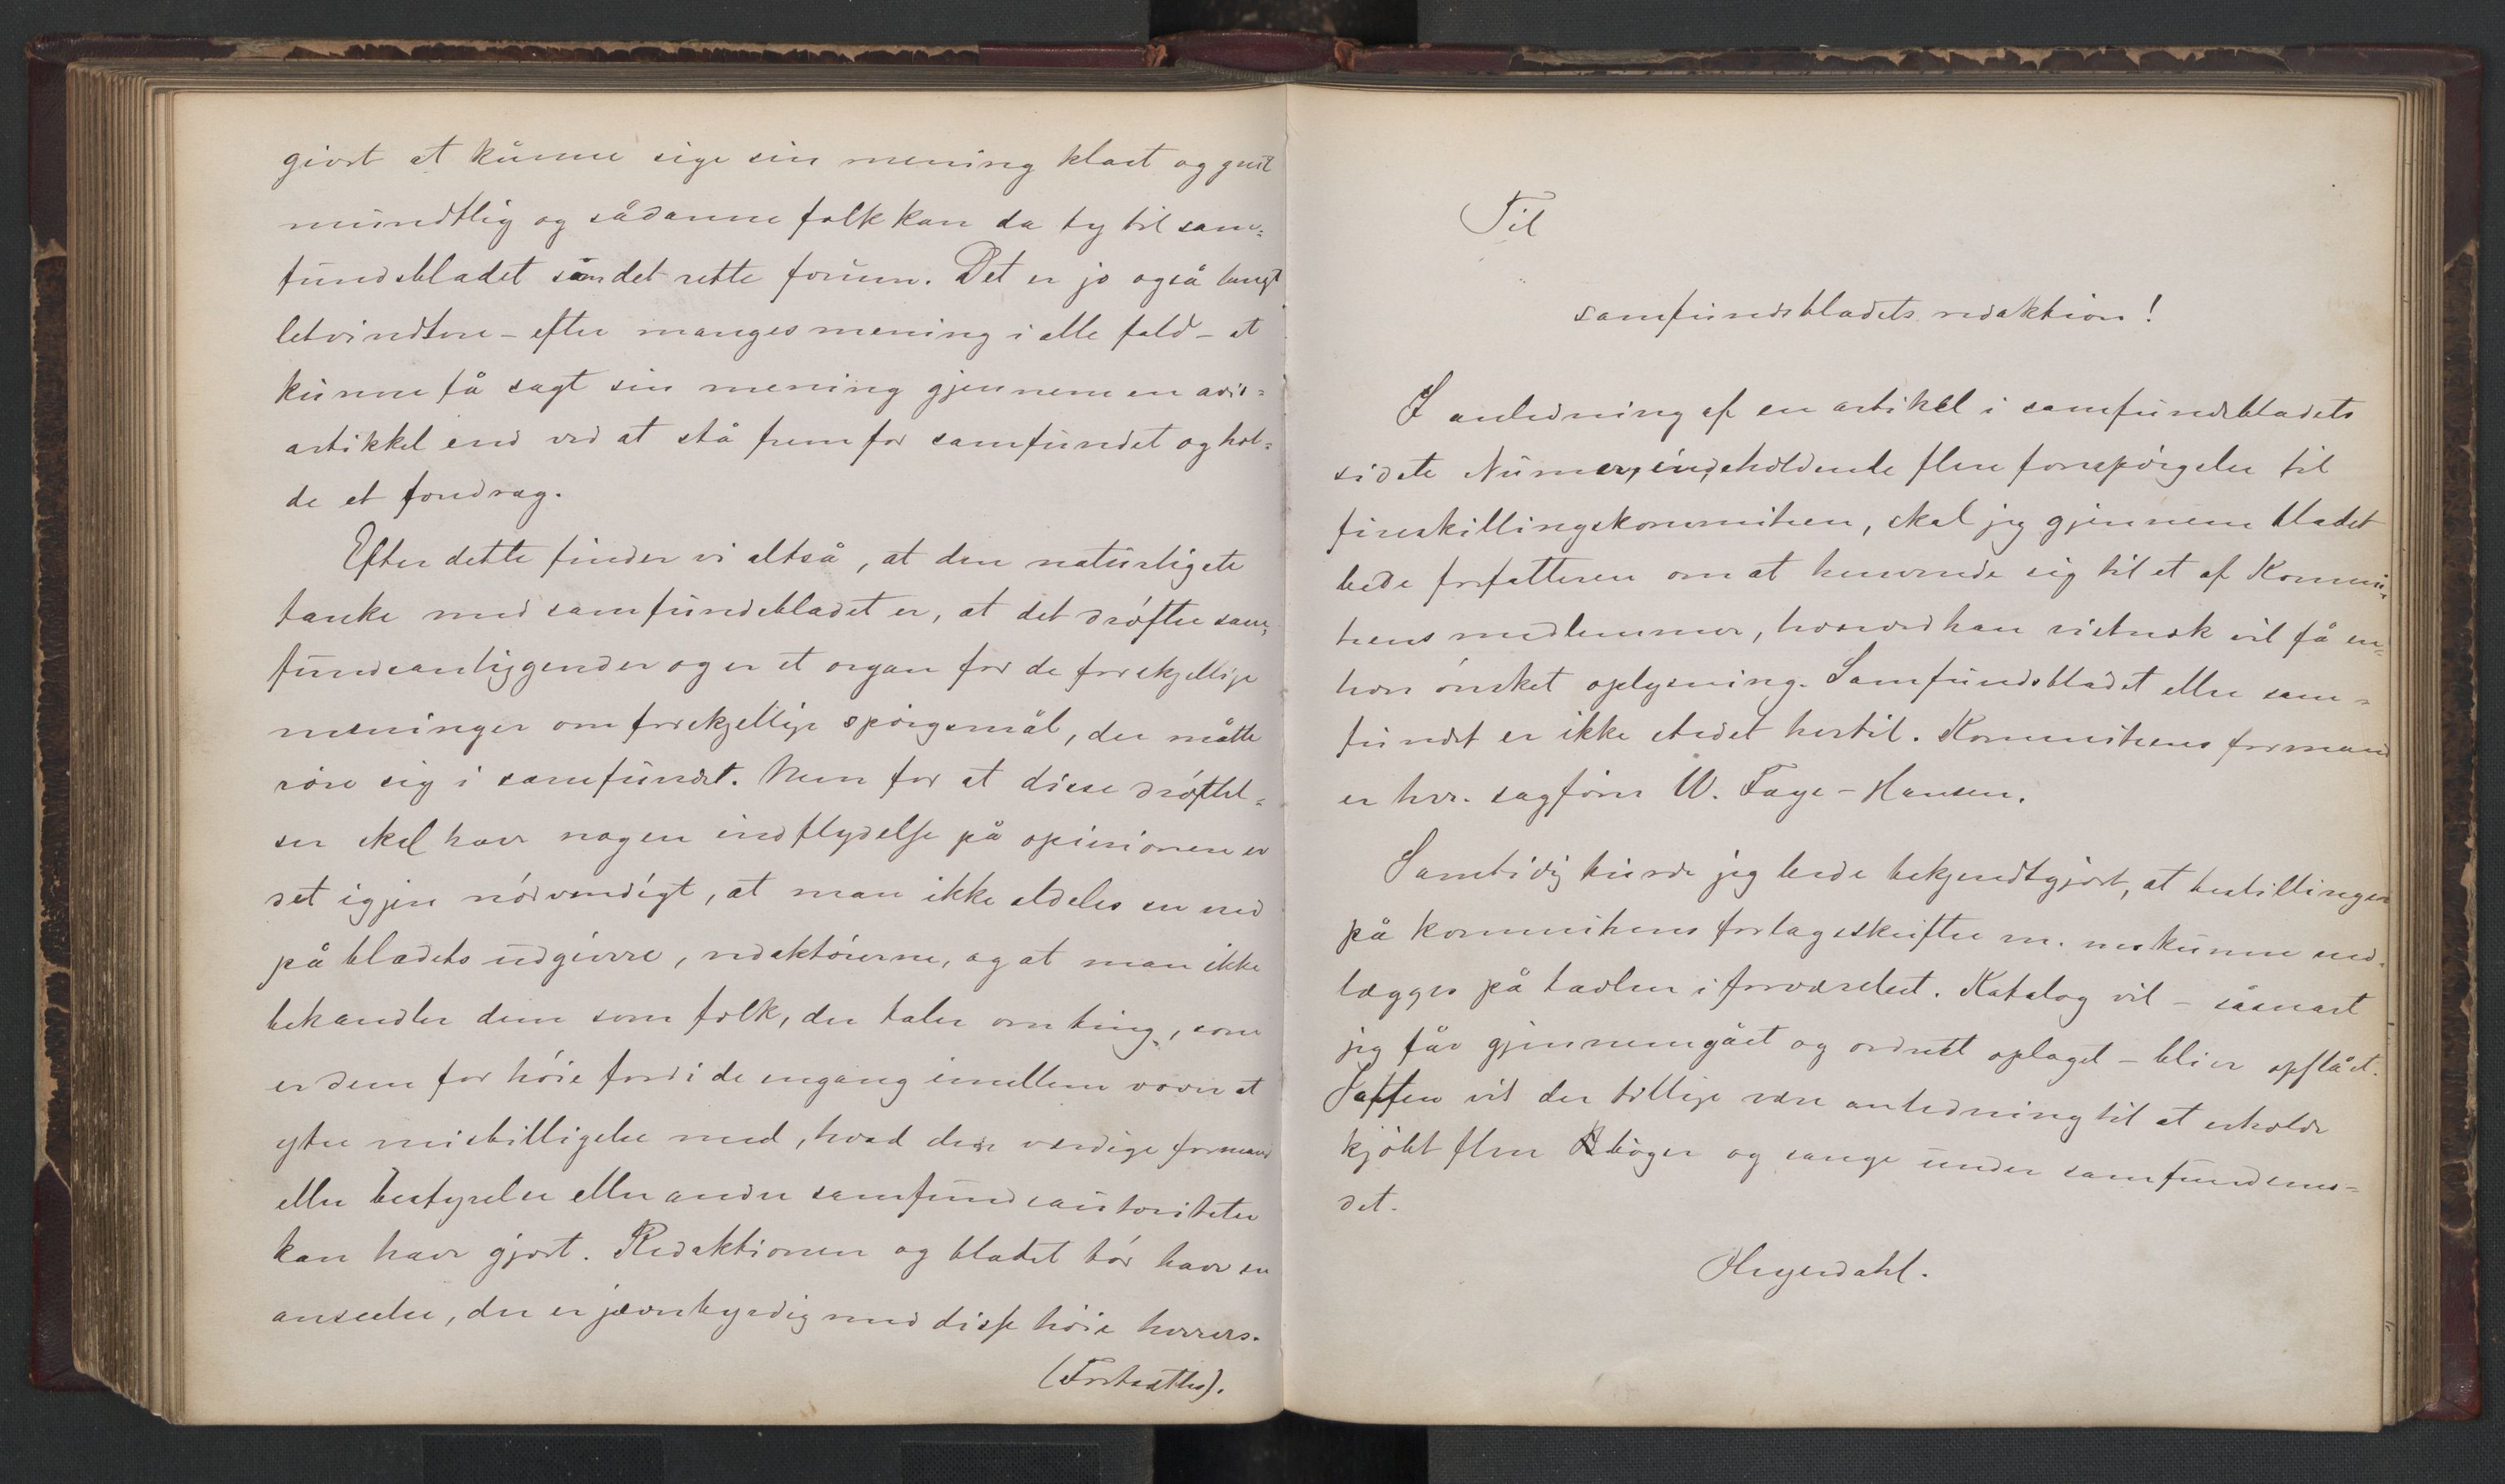 givet at kunne sige sin mening klart og greit
mundtlig og sådanne folk kan da ty til sam=
fundsbladet som det rette forum. Det er jo også langt
letvindtere - efter manges mening i alle fald - at
kunne få sagt sin mening gjennem en avis=
artikkel end ved at stå frem for samfundet og hol=
de et foredrag.
Efter dette finder vi altså, at den naturligste
tanke med samfundsbladet er, at det drøfter sam=
fundsanliggender og er et organ for de forskjellige
meninger om forskjellige spørgsmål, der måtte
røre sig i samfundet. Men for at disse drøftel=
ser skal have nogen indflydelse på opinionen er
det igjen nødvendigt, at man ikke aldeles ser ned
på bladets udgivere, redaktørerne, og at man ikke
behandler dem som folk, der taler om ting, som
er dem for høie fordi de engang imellem vover at
ytre misbilligelse med, hvad den værdige formand
eller bestyrelse eller andre samfundsautoriteter
kan have gjort. Redaktionen og bladet bør have en
anseelse, der er jævnbyrdig med disse høie herrers.
(Fortsættes).
Til
samfundsbladets redaktion!
I anledning af en artikel i samfundsbladets
sidste Numer, indeholdende flere forespørgsler til
fireskillingskommiteen, skal jeg gjennem bladet
bede forfatteren om at henvende sig til et af Kommi=
teens medlemmer, hvorved han vistnok vil få en=
hver ønsket oplysning. Samfundsbladet eller sam=
fundet er ikke stedet hertil. Kommiteens formand
er hrr. sagfører W. Faye-Hansen.
Samtidig turde jeg bede bekjendtgjort, at bestillinger
på kommiteens forlagsskrifter m. m. kunne ned=
lægges på tavlen i forværelset. Katalog vil - såsnart
jeg får gjennemgået og ordnet oplaget - bli er opslået.
Saften vil der tillige være anledning til at erholde
kjøbt flere bøger og sange under samfundsmø=
det.
Heyerdahl.